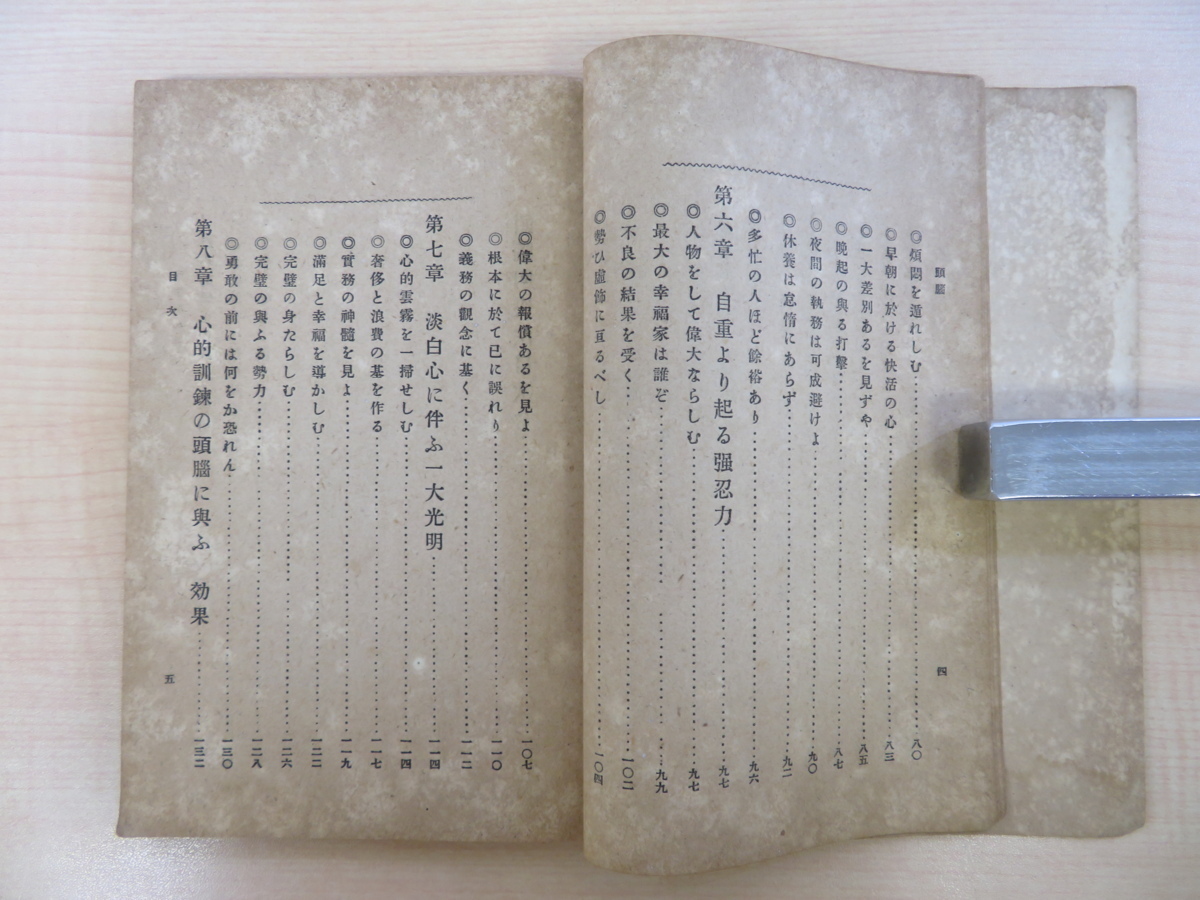 頭腦
◎煩悶を遁れしむ……八〇
◎早朝に於ける快活の心……八三
◎一大差別あるを見ずや……八五
◎晩起の與る打擊……八七
◎夜間の執務は可成避けよ……九〇
◎休養は怠惰にあらず……九二
◎多忙の人ほど餘裕あり……九六
第六章　自重より起る强忍力……九七
◎人物をして偉大ならしむ……九七
◎最大の幸福家は誰ぞ……九九
◎不良の結果を受く……一〇二
◎勢ひ虛飾に亘るべし……一〇四
四
◎偉大の報償あるを見よ……一〇七
◎根本に於て已に誤れり……一一〇
◎義務の觀念に基く……一一二
第七章　淡白心に伴ふ一大光明……一一四
◎心的雲霧を一掃せしむ……一一四
◎奢侈と浪費の墓を作る……一一七
◎實務の神髓を見よ……一一九
◎滿足と幸福を導かしむ……一二二
◎完璧の身たらしむ……一二六
◎完璧の與ふる勢力……一二八
◎勇敢の前には何をか恐れん……一三〇
第八章　心的訓練の頭腦に與ふ　効果……一三二
目次
五